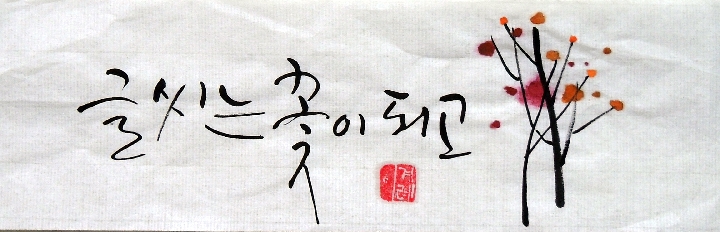 글씨는 꽃이 되고